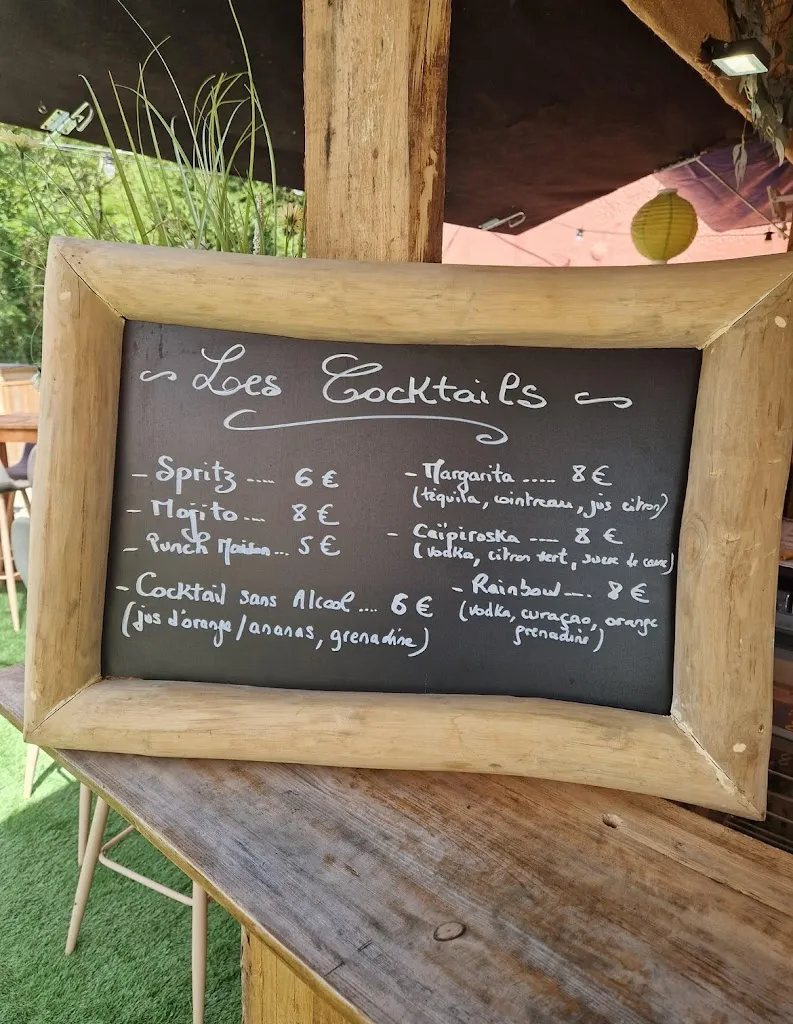 ~ Les Cocktails ~
- Spritz .... 6 €
- Mojito ... 8 €
- Punch Maison ... 5 €
- Cocktail sans Alcool .... 6 €
(jus d'orange/ananas, grenadine)
- Margarita ..... 8 €
(téquila, cointreau, jus citron)
- Caïpiroska .... 8 €
(Vodka, citron vert, sucre de canne)
- Rainbow .... 8 €
(Vodka, curaçao, orange
grenadine)